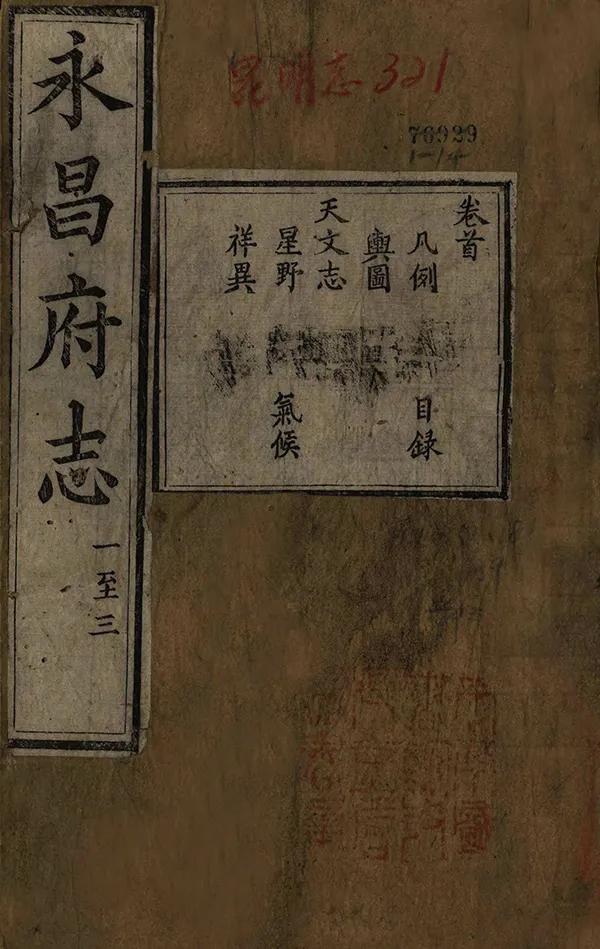 昆明志 321
76929
1-14
卷首
凡例 目錄
輿圖
天文志
星野 氣候
祥異
永昌府志
一至三